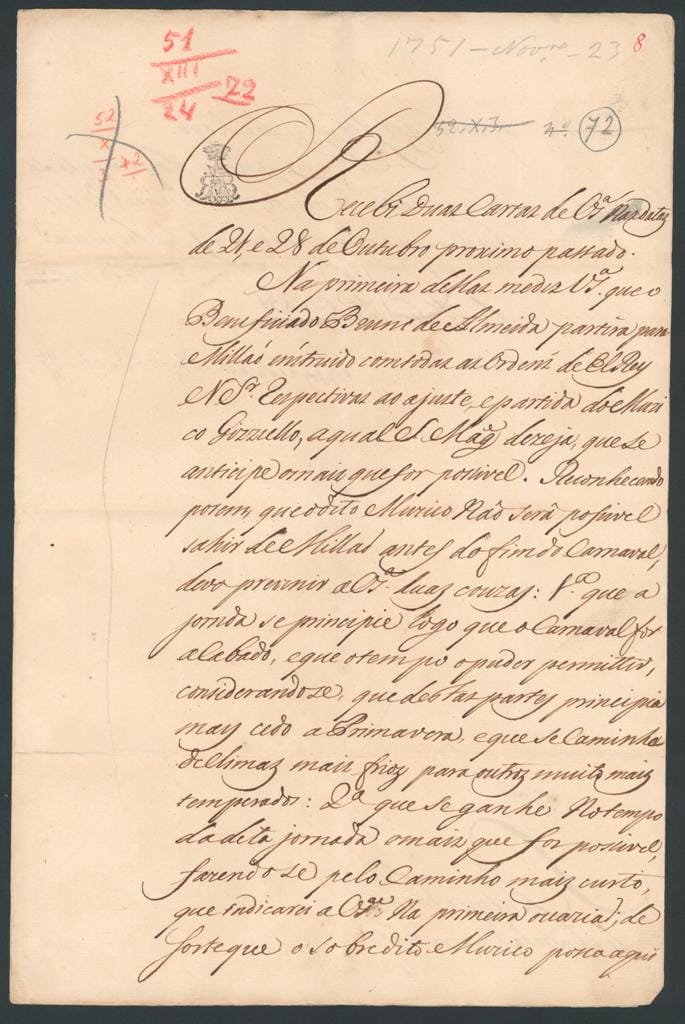 51
XIII
24
72
1751 - Nov.ro - 23
8
52
X
72
52.X.3.
nº
72
Recebi Duas Cartas de VS.ª Nas datas
de 21, e 28 de Outubro proximo passado.
Na primeira dellas me diz VS.ª que o
Beneficiado Bruno de Almeida partira para
Millaõ instruido com todas as Ordens de El Rey
N. Sr. Respectivas ao ajuste, e partida do Muzi
co Gizziello, a qual S. Mag.e dezeja, que se
anticipe o mais que for possivel. Reconhecendo
porem, que o dito Muzico Naõ será possivel
sahir de Millaõ antes do fim do Carnaval,
devo prevenir a VS.ª duas couzas: 1.ª que a
jornda se principie logo que o Carnaval for
acabado, e que o tempo o puder permittir,
considerandose, que destas partes principia
mais cedo a Primavera, e que se Caminha
de Climas mais frios para outros muito mais
temperados: 2.ª que se ganhe No tempo
da dita jornada o mais que for possivel,
fazendose pelo Caminho mais curto,
que indicarei a VS.ª Na primeira ; de
sorte que o sobredito Muzico possa aqui